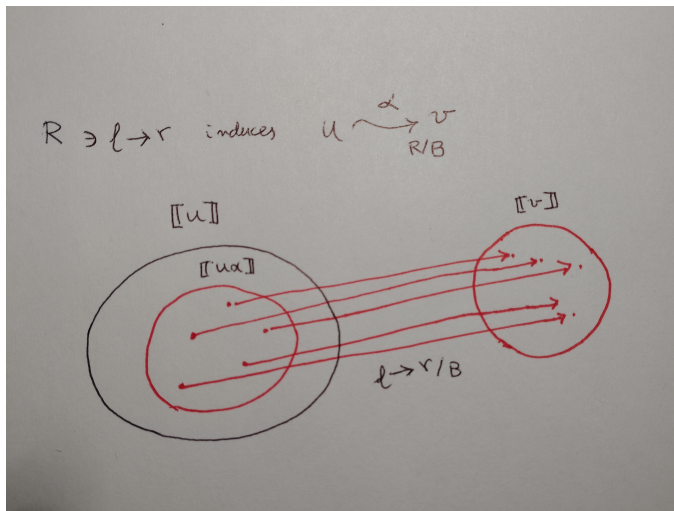 R ∋ l → r induces u ⇝ v
α
R/B
⟦u⟧
⟦v⟧
⟦uα⟧
l → r/B